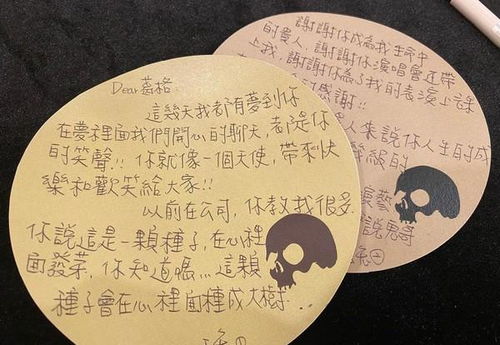 Dear 葛格
這幾天我都有夢到你
在夢裡面我們開心的聊天,都是你
的笑聲!! 你就像一個天使,帶來快
樂和歡笑給大家!!
以前在公司,你教我很多
你說這是一顆種子,在心裡
面發芽,你知道嗎...這顆
種子會在心裡面種成大樹...
謝謝你成為我生命中
的貴人,謝謝你演唱會還帶
上我,謝謝你為了我的表演上
感謝!!
人來說你人生的成
級的
說鬼哥